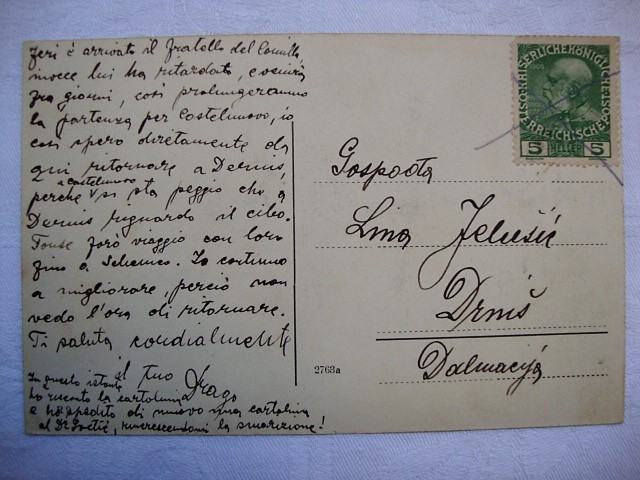 Jeri è arrivato il fratello del Camillo,
invece lui ha ritardato, e venirà
fra giorni, così prolungeranno
la partenza per Castelnuovo, io
così spero direttamente da
qui ritornare a Dernis,
perchè a Castelnuovo si sta peggio che a
Dernis riguardo il cibo.
Forse farò viaggio con loro
fino a Sebenico. Io continuo
a migliorare, perciò non
vedo l'ora di ritornare.
Ti saluta cordialmente
il tuo Drago
In questo istante
ho ricevuto la cartolina
e ho spedito di nuovo una cartolina
al Dr, rincrescendomi la smarizione!
2763a
KAISERLICHE KÖNIGLICHE
ÖSTERREICHISCHE
5 HELLER 5
Gospođa
Lina Jelušić
Drniš
Dalmacija